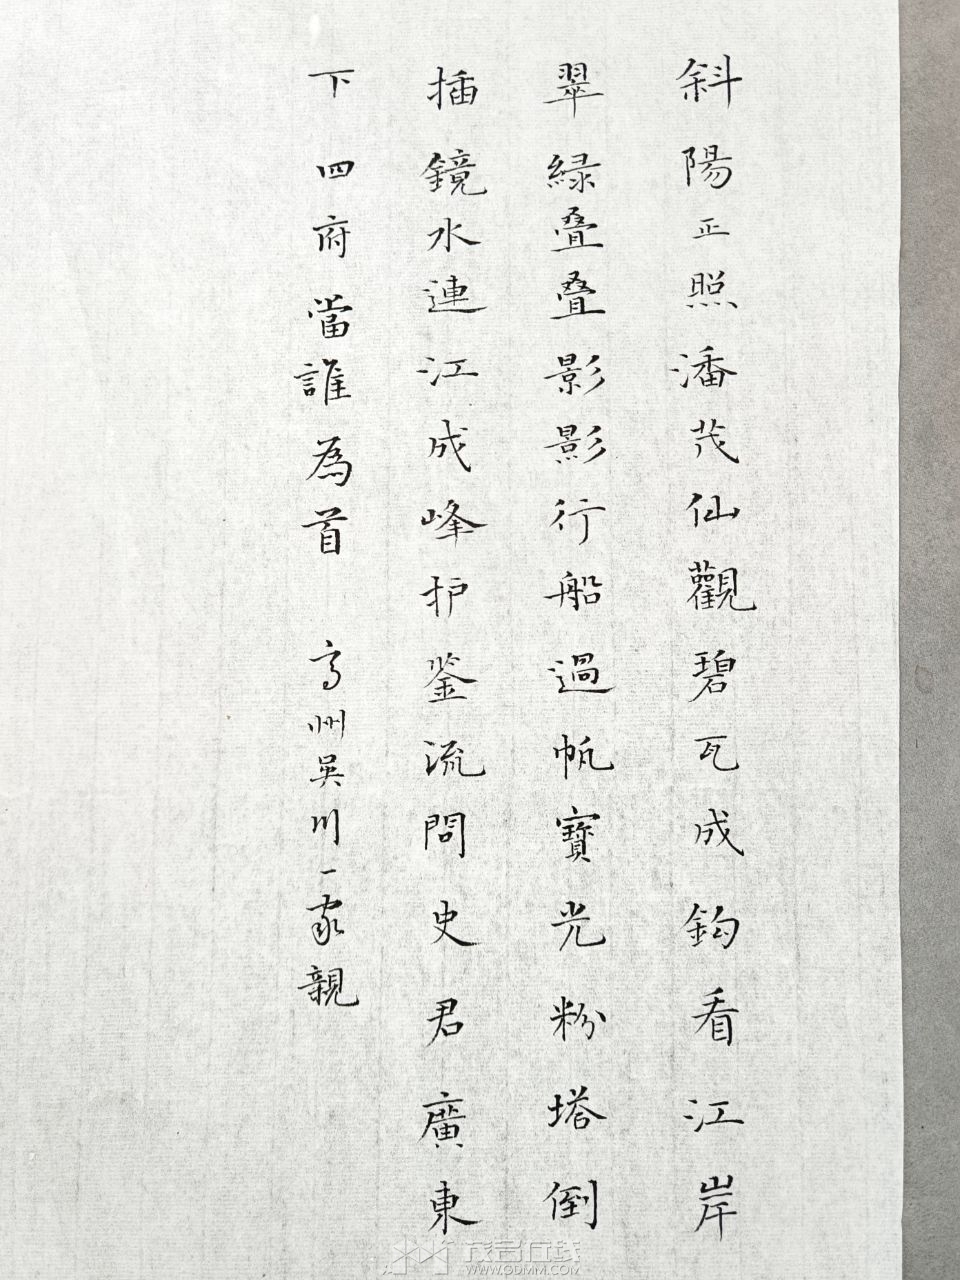 斜陽正照潘茂仙觀碧瓦成鈎看江岸
翠綠叠叠影影行船過帆寶光粉塔倒
插鏡水連江成峰护鉴流問史君廣東
下四府當誰為首 高州吳川一家親
茂名在线
WWW.GDMM.COM